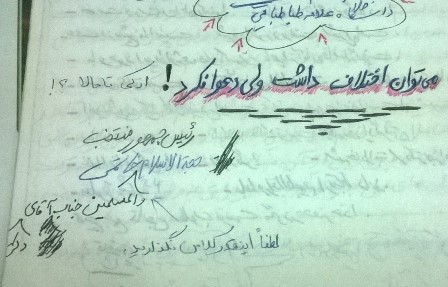 دانشگاه علامه طباطبایی
می‌توان اختلاف داشت ولی دعوا نکرد! ازکی تا حالا ؟!
رئیس جمهور منتخب
حجة الاسلام خاتمی
والمسلمین جناب آقای
لطفاً اینقدر کلاس نگذارید.